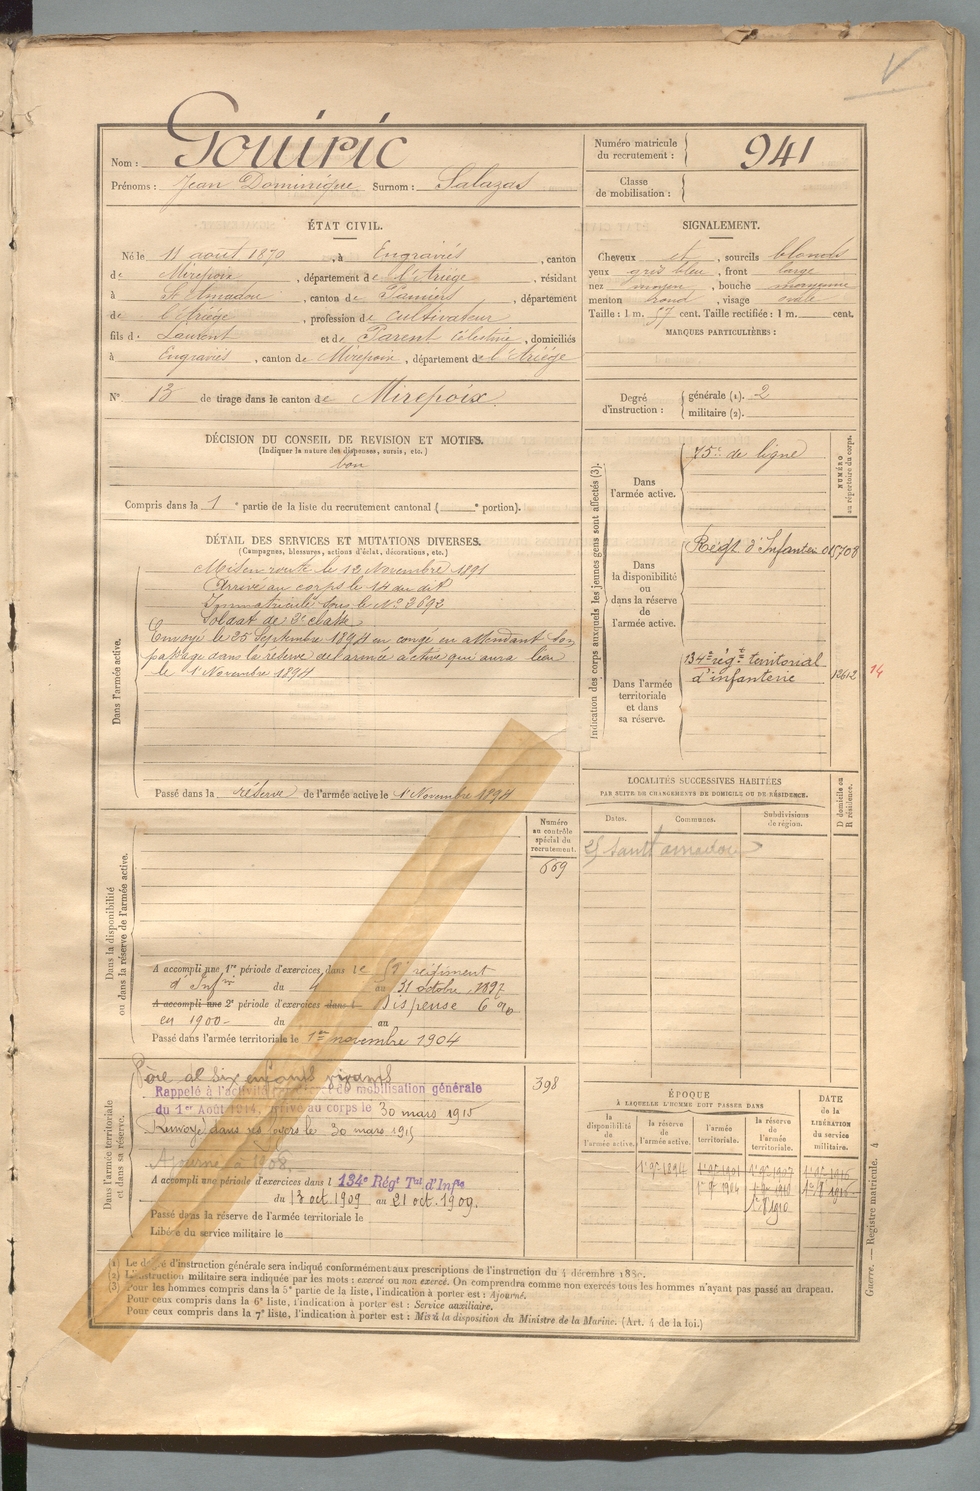 Nom : Gouiric
Prénoms : Jean Dominique Surnom : Salazas
Numéro matricule du recrutement : 941
Classe de mobilisation :
ÉTAT CIVIL.
Né le 11 août 1870, à Engraviès, canton
de Mirepoix, département de l'Ariège, résidant
à St Amadou, canton de Pamiers, département
de l'Ariège, profession de cultivateur
fils de Laurent et de Parent Célestine, domiciliés
à Engraviès, canton de Mirepoix, département de l'Ariège
N° 13 de tirage dans le canton de Mirepoix
SIGNALEMENT.
Cheveux et, sourcils blonds
yeux gris bleu, front large
nez moyen, bouche moyenne
menton rond, visage ovale
Taille : 1 m. 57 cent. Taille rectifiée : 1 m. cent.
MARQUES PARTICULIÈRES :
Degré d'instruction : générale (1). 2
militaire (2).
DÉCISION DU CONSEIL DE REVISION ET MOTIFS.
(Indiquer la nature des dispenses, sursis, etc.)
bon
Compris dans la 1e partie de la liste du recrutement cantonal ( e portion).
DÉTAIL DES SERVICES ET MUTATIONS DIVERSES.
(Campagnes, blessures, actions d'éclat, décorations, etc.)
Dans l'armée active.
Mis en route le 12 Novembre 1891
Arrivé au corps le 14 du dit
Immatriculé sous le No 3692
Soldat de 2e classe
Envoyé le 25 Septembre 1894 en congé en attendant son
passage dans la réserve de l'armée active qui aura lieu
le 1 Novembre 1894
Passé dans la réserve de l'armée active le 1 Novembre 1894
Indication des corps auxquels les jeunes gens sont affectés (3).
NUMÉRO au répertoire du corps.
Dans l'armée active.
75e de ligne
Dans la disponibilité ou dans la réserve de l'armée active.
Régt d'Infanterie 015708
Dans l'armée territoriale et dans sa réserve.
134e rég.t territorial
d'infanterie
12612
14
LOCALITÉS SUCCESSIVES HABITÉES
PAR SUITE DE CHANGEMENTS DE DOMICILE OU DE RÉSIDENCE.
Dates. Communes. Subdivisions de région. D domicile ou R résidence.
Saint amadou
Dans la disponibilité ou dans la réserve de l'armée active.
Numéro au contrôle spécial du recrutement.
669
A accompli une 1re période d'exercices dans le régiment
d'Infrie du 4 au 31 octobre 1897
A accompli une 2e période d'exercices dans l Dispense 6 %
en 1900 du au
Passé dans l'armée territoriale le 1er novembre 1904
Dans l'armée territoriale et dans sa réserve.
398
Père de six enfants vivants
Rappelé à l'activité mobilisation générale
du 1er Août 1914, arrivé au corps le 30 mars 1915
Renvoyé dans ses foyers le 30 mars 1915
Ajourné à 1908
A accompli une période d'exercices dans l 134e Régt Tal d'Infie
du 13 oct. 1909 au 21 oct. 1909.
Passé dans la réserve de l'armée territoriale le
Libéré du service militaire le
ÉPOQUE
À LAQUELLE L'HOMME DOIT PASSER DANS
la disponibilité de l'armée active. la réserve de l'armée active. l'armée territoriale. la réserve de l'armée territoriale.
DATE de la LIBÉRATION du service militaire.
1er 9bre 1894 1er 9bre 1901 1er 9bre 1907 1er 9bre 1916
1er 9bre 1904 1er 9bre 1910
(1) Le degré d'instruction générale sera indiqué conformément aux prescriptions de l'instruction du 4 décembre 1889.
(2) L'instruction militaire sera indiquée par les mots : exercé ou non exercé. On comprendra comme non exercés tous les hommes n'ayant pas passé au drapeau.
(3) Pour les hommes compris dans la 5e partie de la liste, l'indication à porter est : Ajourné.
Pour ceux compris dans la 6e liste, l'indication à porter est : Service auxiliaire.
Pour ceux compris dans la 7e liste, l'indication à porter est : Mis à la disposition du Ministre de la Marine. (Art. 4 de la loi.)
Guerre. — Registre matricule. 4